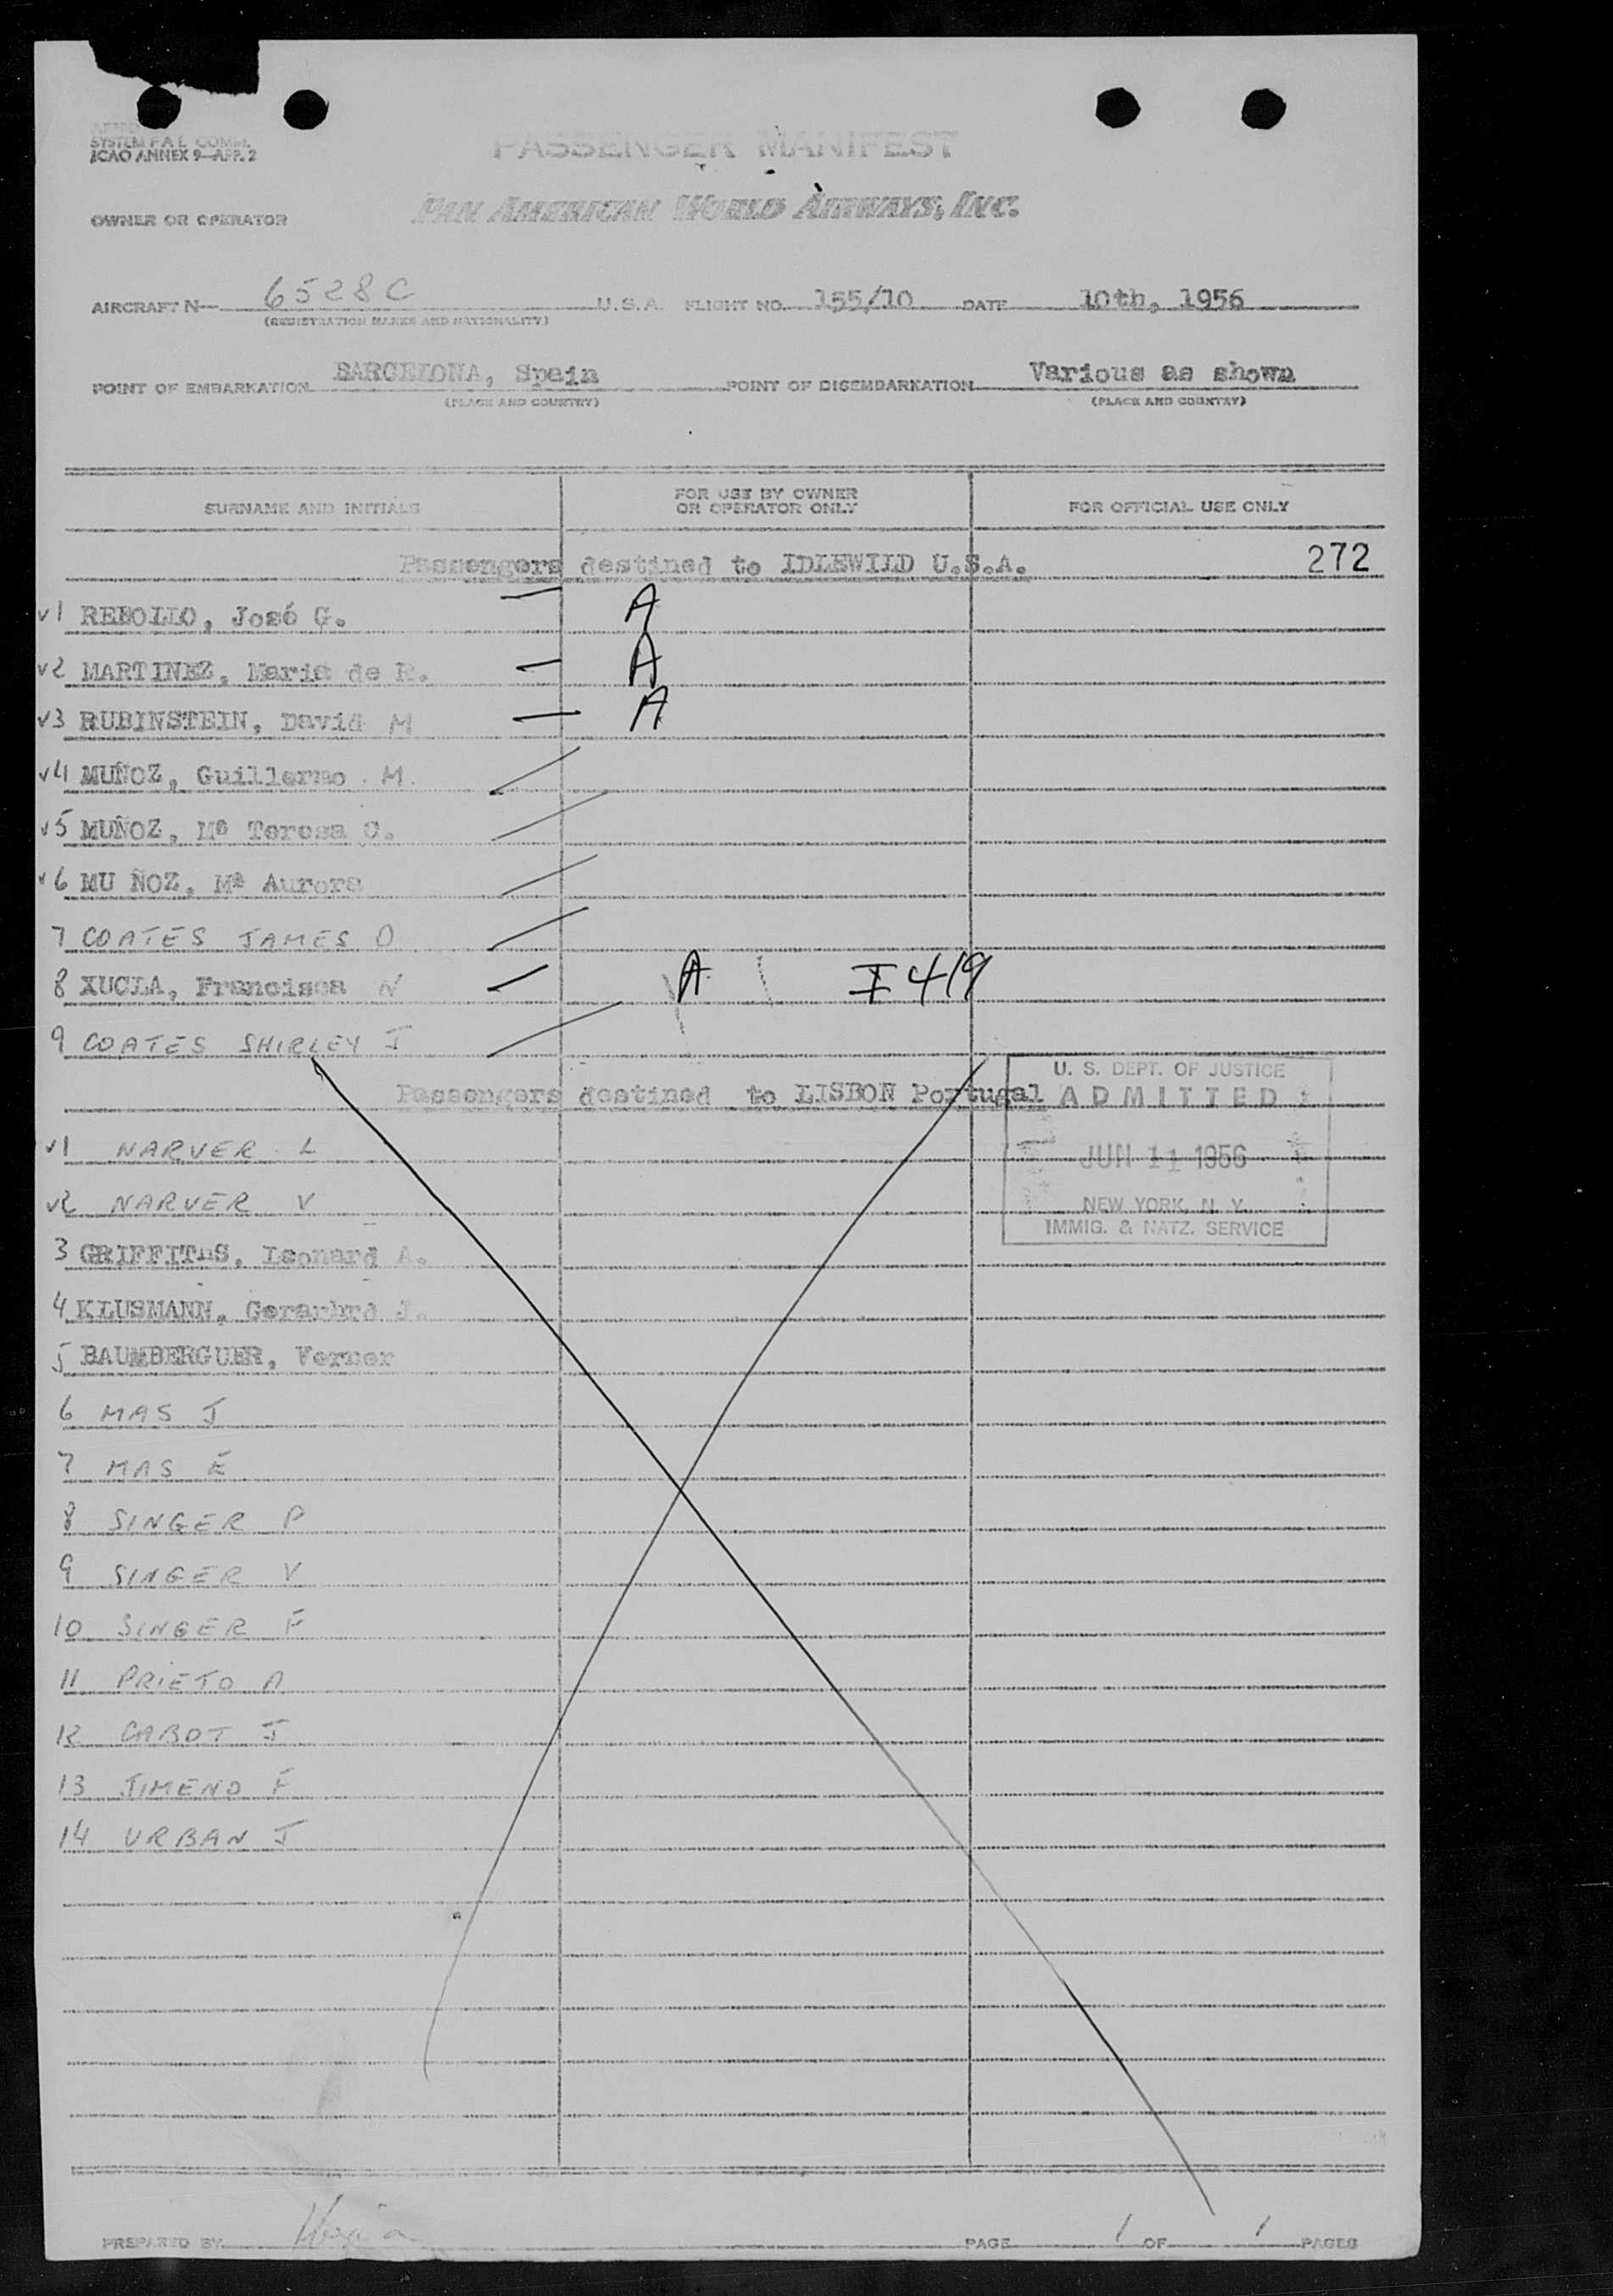 SYSTEM F A L COMM.
ICAO ANNEX 9—APP. 2
PASSENGER MANIFEST
OWNER OR OPERATOR PAN AMERICAN WORLD AIRWAYS, INC.
AIRCRAFT N— 6528C U.S.A. FLIGHT NO. 155/10 DATE 10th, 1956
(REGISTRATION MARKS AND NATIONALITY)
POINT OF EMBARKATION BARCELONA, Spain POINT OF DISEMBARKATION Various as shown
(PLACE AND COUNTRY) (PLACE AND COUNTRY)
SURNAME AND INITIALS FOR USE BY OWNER OR OPERATOR ONLY FOR OFFICIAL USE ONLY
Passengers destined to IDLEWILD U.S.A. 272
v1 REBOLLO, José G. — A
v2 MARTINEZ, Maria de R. — A
v3 RUBINSTEIN, David M — A
v4 MUÑOZ, Guillermo M.
v5 MUÑOZ, Mª Teresa O.
v6 MU ÑOZ, Mª Aurora
7 COATES JAMES O
8 XUCLA, Francisca N — A I 419
9 COATES SHIRLEY J
Passengers destined to LISBON Portugal
U. S. DEPT. OF JUSTICE
ADMITTED
JUN 11 1956
NEW YORK, N. Y.
IMMIG. & NATZ. SERVICE
v1 NARVER L
v2 NARVER V
3 GRIFFITHS, Leonard A.
4 KLUSMANN, Gerarhrd J.
5 BAUMBERGUER, Verner
6 MAS J
7 MAS E
8 SINGER P
9 SINGER V
10 SINGER F
11 PRIETO A
12 CABOT J
13 JIMENO F
14 URBAN J
PREPARED BY PAGE 1 OF 1 PAGES